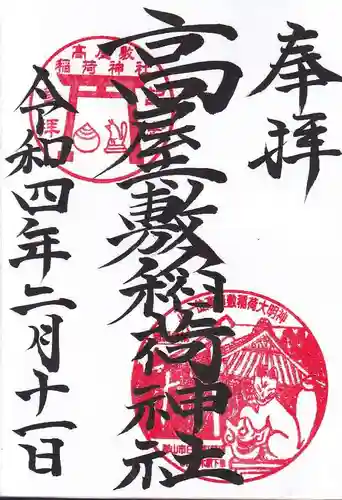 奉拝
高屋敷稲荷神社
令和四年二月十一日
高屋敷
稲荷神社
敷稲荷大明神
山市日